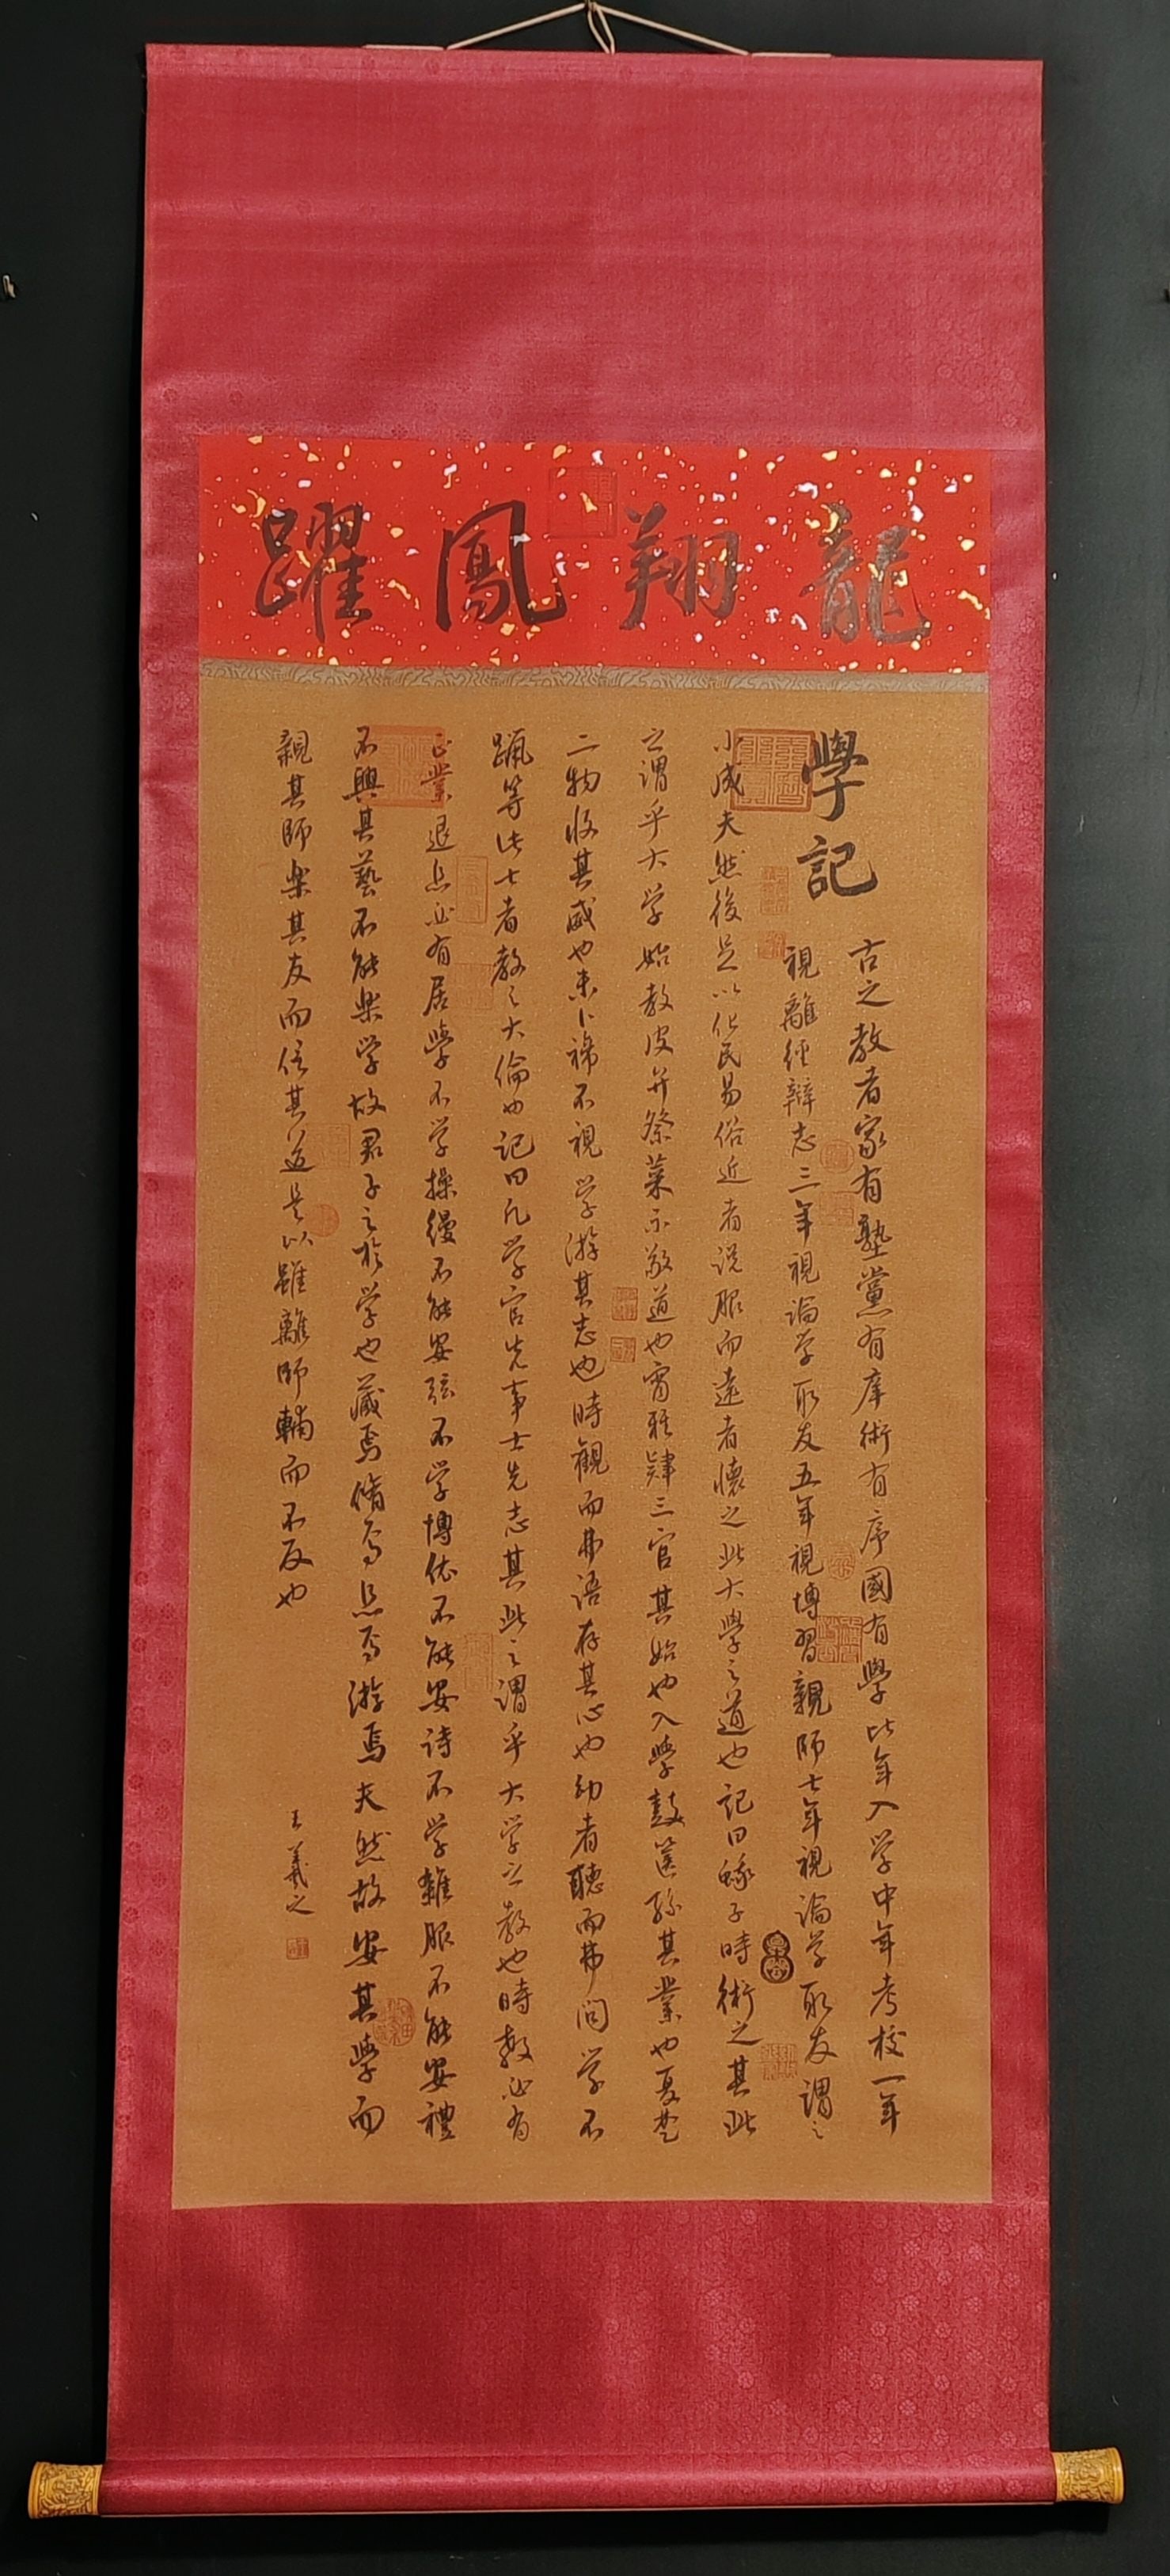 龍翔鳳躍
學記
古之教者家有塾黨有庠術有序國有學比年入学中年考校一年
視離經辨志三年視論学取友五年視博習親師七年視論学取友謂之
小成夫然後足以化民易俗近者説服而遠者懷之此大學之道也記曰蛾子時術之其此
之謂乎大学始教皮弁祭菜示敬道也宵雅肄三官其始也入學鼓篋孫其業也夏楚
二物收其威也未卜禘不視学游其志也時觀而弗語存其心也幼者聽而弗問学不
躐等此七者教之大倫也記曰凡学官先事士先志其此之謂乎大学之教也時教必有
正業退息必有居學不学操縵不能安弦不学博依不能安詩不学雜服不能安禮
不興其藝不能樂学故君子之於学也藏焉脩焉息焉游焉夫然故安其學而
親其師樂其友而信其道是以雖離師輔而不反也
王羲之